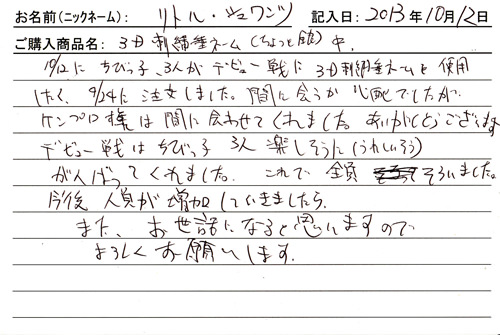 お名前(ニックネーム): リトル・ジャワンツ 記入日: 2013年10月12日
ご購入商品名: 3D刺繍ネーム(ちょっと 中.
10/12にちびっ子、3人がデビュー戦に3D刺繍ネームを使用
したく、9/24に注文しました。間に合うか心配でしたが、
ケンプロ様は間に合わせてくれました。ありがとうございます
デビュー戦はちびっ子 3人 楽しそうに(うれしそう)
がんばってくれました。これで全員 そろいました。
今後人員が増加していきましたら.
また、お世話になると思いますので
よろしくお願いします。